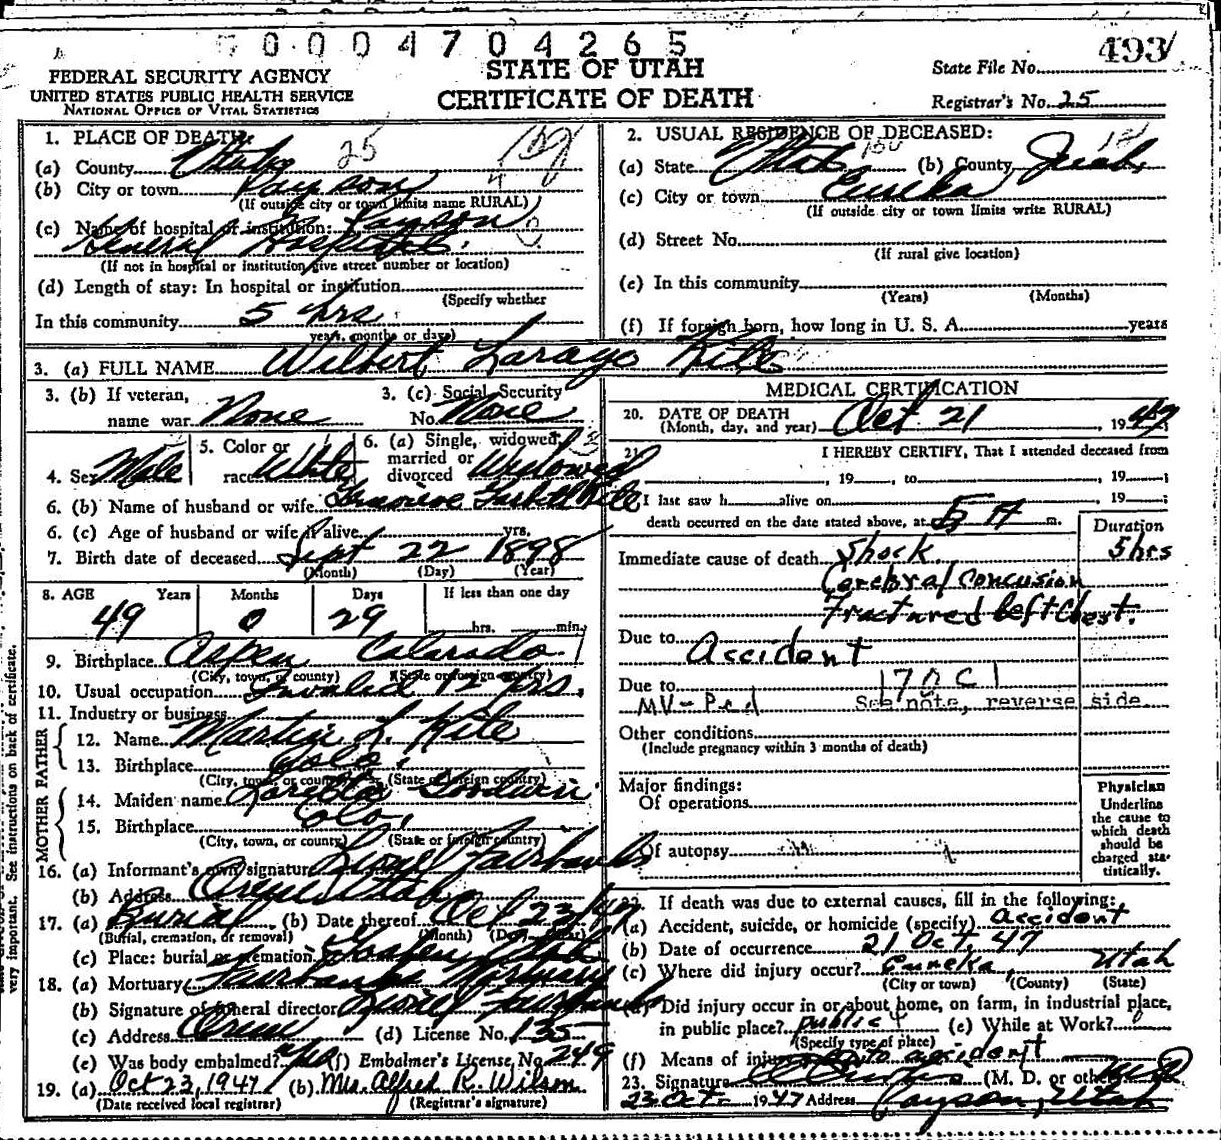 0004704265
493
STATE OF UTAH
CERTIFICATE OF DEATH
FEDERAL SECURITY AGENCY
UNITED STATES PUBLIC HEALTH SERVICE
NATIONAL OFFICE OF VITAL STATISTICS
State File No.
Registrar's No. 25
1. PLACE OF DEATH: 25
(a) County Utah
(b) City or town Payson
(If outside city or town limits name RURAL)
(c) Name of hospital or institution: Payson
General Hospital.
(If not in hospital or institution give street number or location)
(d) Length of stay: In hospital or institution
(Specify whether
In this community 5 hrs.
years, months or days)
2. USUAL RESIDENCE OF DECEASED:
(a) State Utah (b) County Juab
(c) City or town Eureka
(If outside city or town limits write RURAL)
(d) Street No.
(If rural give location)
(e) In this community
(Years) (Months)
(f) If foreign born, how long in U. S. A. years
3. (a) FULL NAME Wilbert Kile
3. (b) If veteran, name war None
3. (c) Social Security No. None
4. Sex Male
5. Color or race White
6. (a) Single, widowed, married or divorced Widowed
6. (b) Name of husband or wife Kile
6. (c) Age of husband or wife if alive yrs.
7. Birth date of deceased Sept 22 1898
(Month) (Day) (Year)
8. AGE Years Months Days If less than one day
49 0 29 hrs. min.
9. Birthplace Aspen Colorado
(City, town, or county) (State or foreign country)
10. Usual occupation Invalid 12 yrs.
11. Industry or business
FATHER
12. Name Martin L. Kile
13. Birthplace Colo.
(City, town, or county) (State or foreign country)
MOTHER
14. Maiden name Loretta Goodwin
15. Birthplace Colo.
(City, town, or county) (State or foreign country)
16. (a) Informant's own signature Fairbanks
(b) Address Orem Utah
17. (a) Burial (b) Date thereof Oct 23/47
(Burial, cremation, or removal) (Month) (Day) (Year)
(c) Place: burial or cremation
18. (a) Mortuary Fairbanks Mortuary
(b) Signature of funeral director Fairbanks
(c) Address Orem (d) License No. 135
(e) Was body embalmed? (f) Embalmer's License No. 249
19. (a) Oct 23, 1947 (b) Mrs. Alfred R. Wilson
(Date received local registrar) (Registrar's signature)
MEDICAL CERTIFICATION
20. DATE OF DEATH
(Month, day, and year) Oct 21, 1947
21. I HEREBY CERTIFY, That I attended deceased from
, 19 , to , 19 ;
I last saw h alive on , 19 ;
death occurred on the date stated above, at 5 A m.
Duration
Immediate cause of death Shock 5 hrs
Cerebral Concusion
Fractured Left Chest.
Due to Accident
Due to 170C1
MV-Ped See note, reverse side
Other conditions
(Include pregnancy within 3 months of death)
Major findings:
Of operations
Of autopsy
Physician
Underline
the cause to
which death
should be
charged sta-
tistically.
22. If death was due to external causes, fill in the following:
(a) Accident, suicide, or homicide (specify) Accident
(b) Date of occurrence 21 Oct, 47
(c) Where did injury occur? Eureka, Utah
(City or town) (County) (State)
(d) Did injury occur in or about home, on farm, in industrial place,
in public place? public (e) While at Work?
(Specify type of place)
(f) Means of injury Auto accident
23. Signature (M. D. or other) MD
23 Oct 1947 Address Payson, Utah
very important. See instructions on back of certificate.